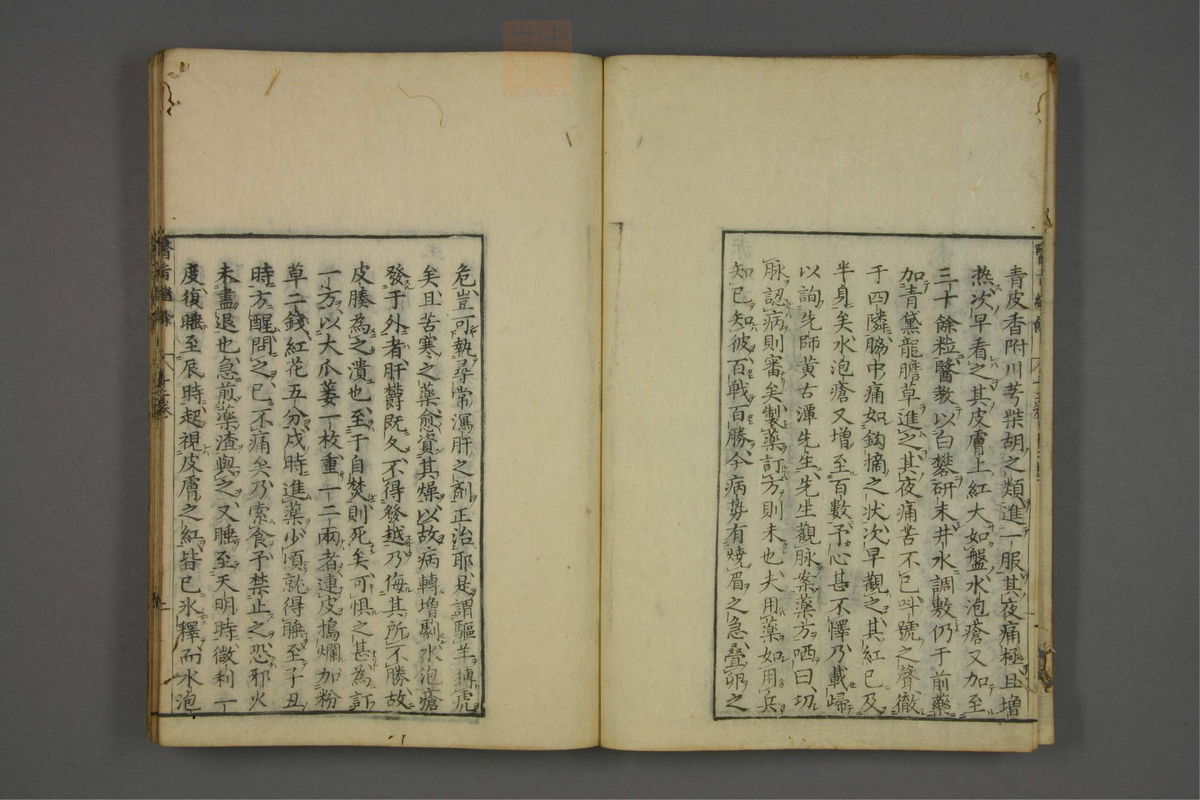 青皮香附川芎柴胡之類進一服其夜痛極且增
熱次早看之其皮膚上紅大如盤水泡瘡又加至
三十餘粒醫教以白礬研末井水調敷仍于前藥
加青黛龍膽草進之其夜痛苦不已叫號之聲徹
于四隣脇中痛如鈎摘之狀次早觀之其紅已及
半身矣水泡瘡又增至百數予心甚不懌乃載歸
以詢先師黃古潭先生先生觀脉案藥方哂曰切
脉認病則審矣製藥訂方則未也夫用藥如用兵
知己知彼百戰百勝今病勢有燒眉之急疊卵之
危豈可執尋常瀉肝之劑正治耶是謂驅羊搏虎
矣且苦寒之藥愈資其燥以故病轉增劇水泡瘡
發于外者肝欝既久不得發越乃侮其所不勝故
皮腠為之潰也至于自焚則死矣可懼之甚為訂
一方以大瓜蔞一枚重一二兩者連皮搗爛加粉
草二錢紅花五分戌時進藥少頃就得睡至子丑
時方醒問之已不痛矣乃索食予禁止之恐邪火
未盡退也急煎藥渣與之又睡至天明時微利一
度復睡至辰時起視皮膚之紅皆已氷釋而水泡